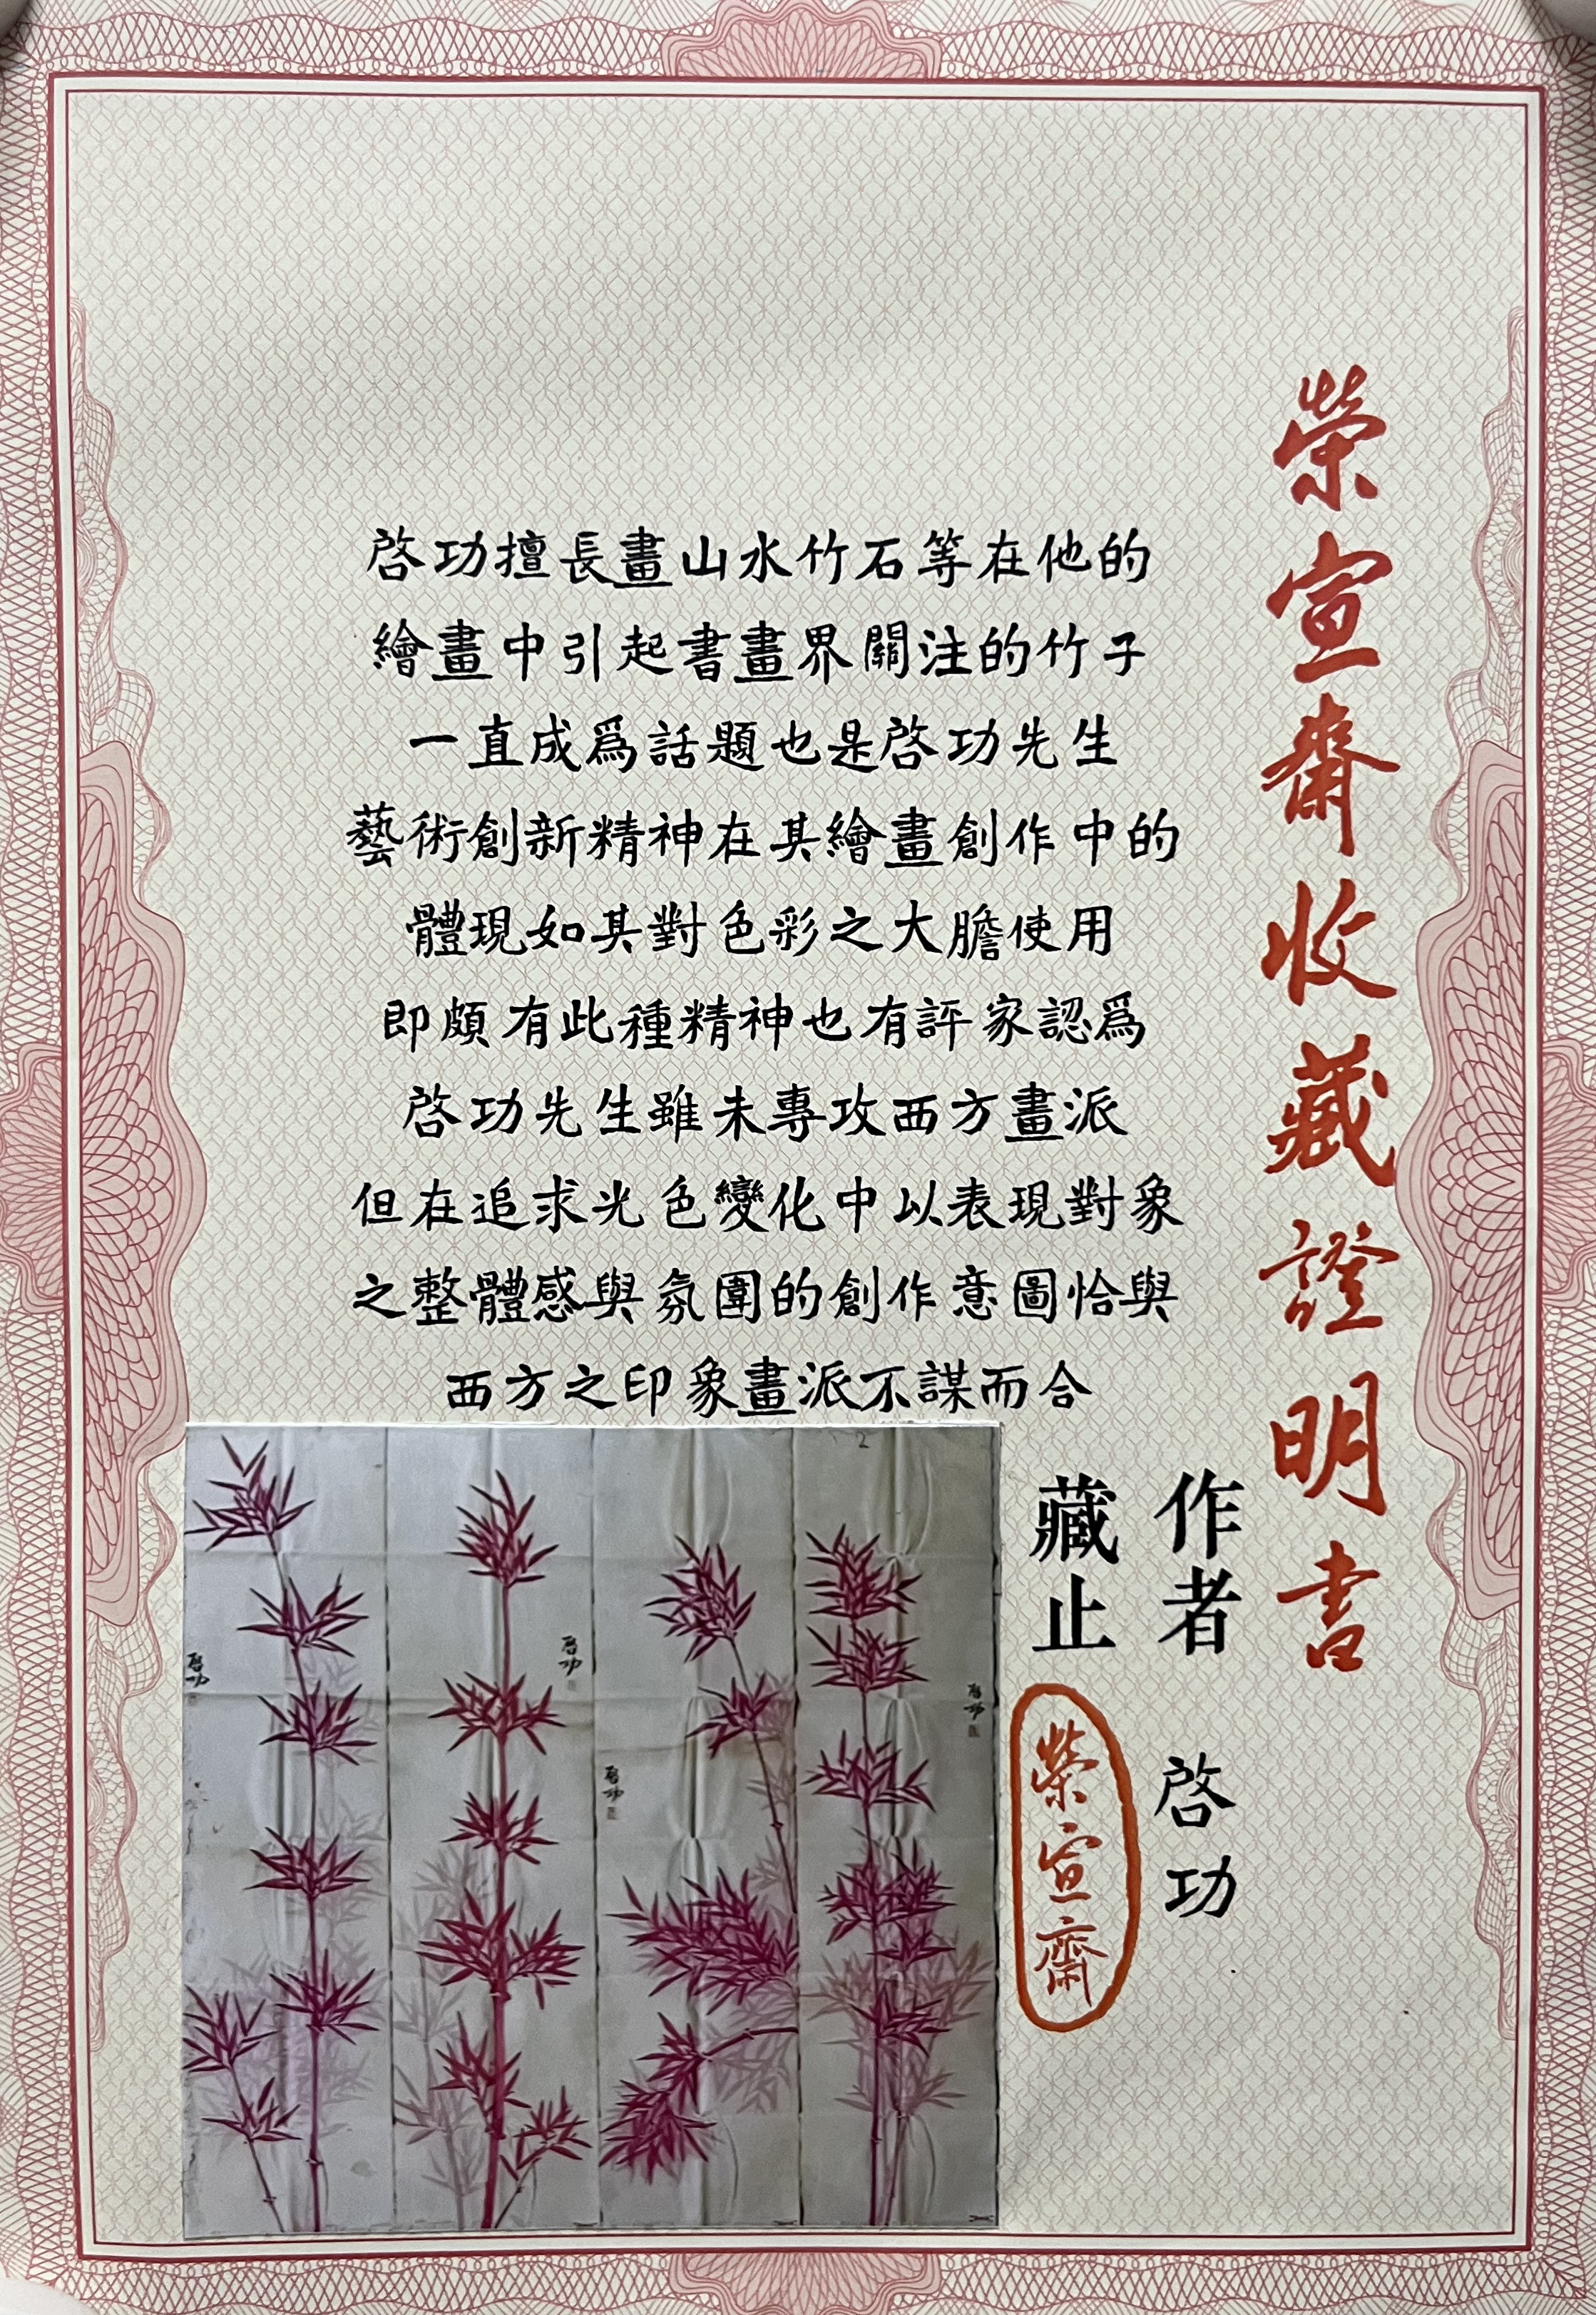 榮宣齋收藏證明書
啓功擅長畫山水竹石等在他的
繪畫中引起書畫界關注的竹子
一直成爲話題也是啓功先生
藝術創新精神在其繪畫創作中的
體現如其對色彩之大膽使用
即頗有此種精神也有評家認爲
啓功先生雖未專攻西方畫派
但在追求光色變化中以表現對象
之整體感與氛圍的創作意圖恰與
西方之印象畫派不謀而合
作者 啓功
藏止 榮宣齋
啓功
啓功
啓功
啓功
2